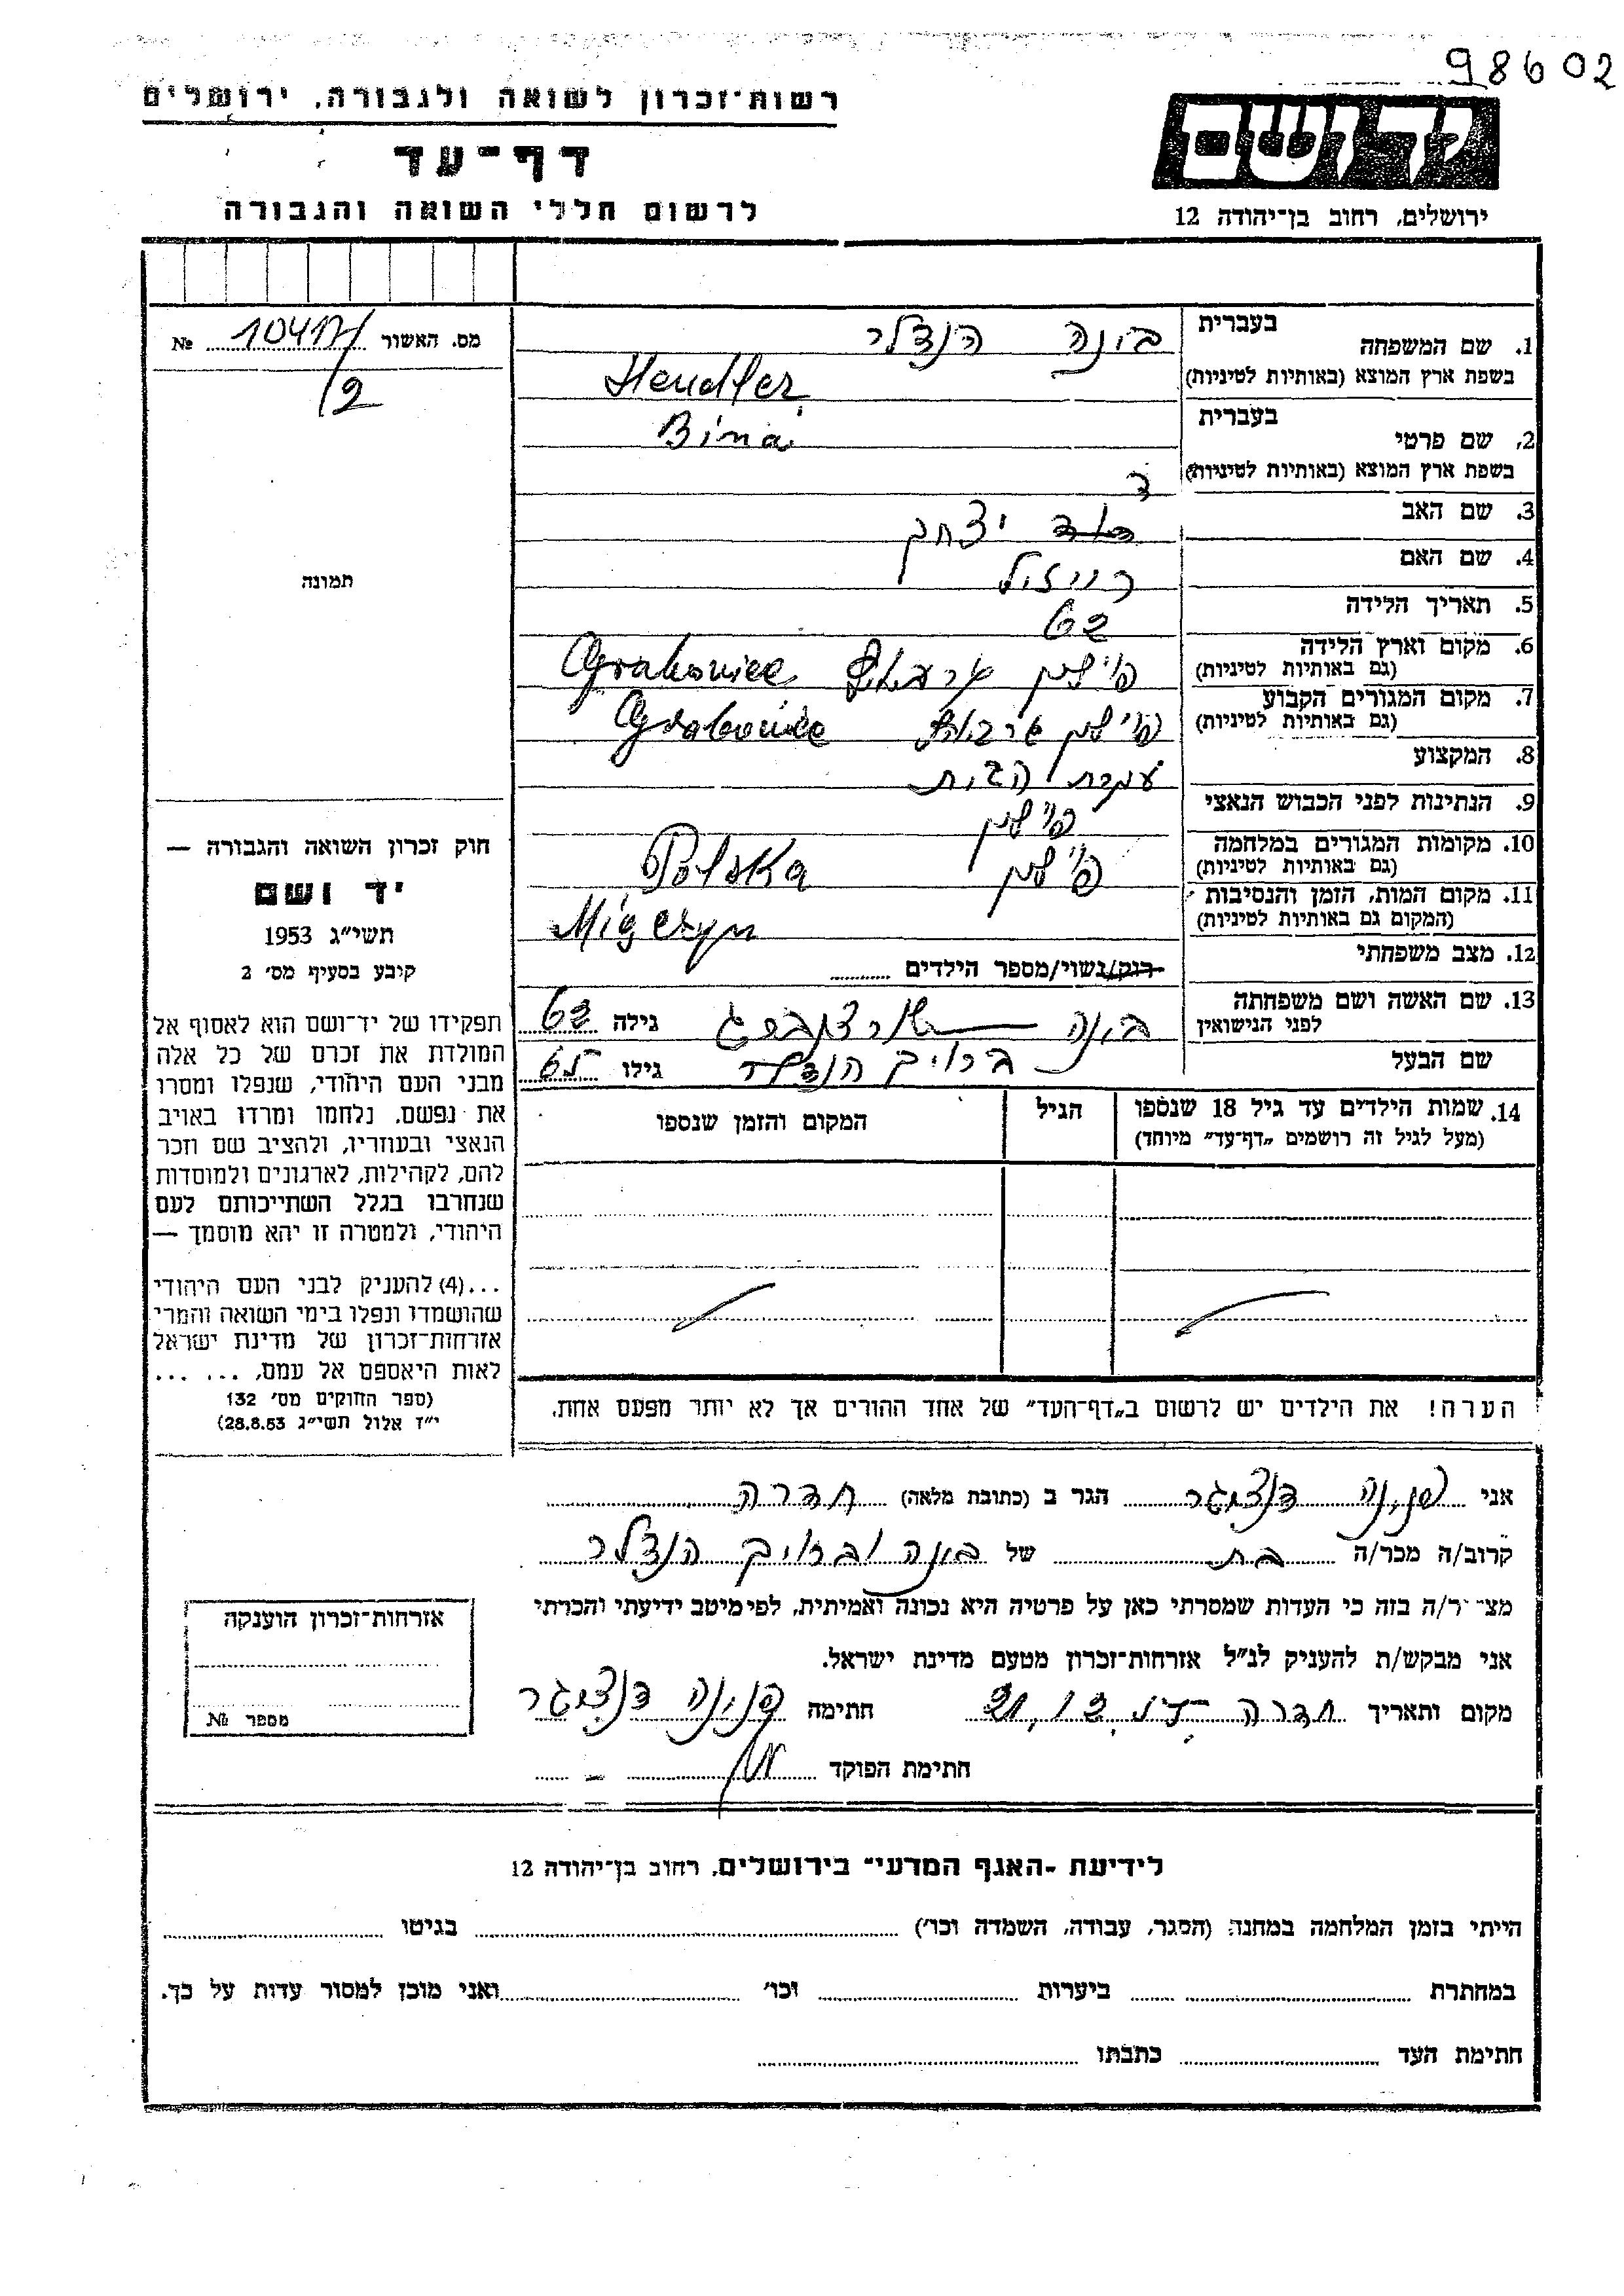 98602
רשות־זכרון לשואה ולגבורה, ירושלים
דף־עד
לרשום חללי השואה והגבורה
יד ושם
ירושלים, רחוב בן־יהודה 12
מס. האשור № 10417/
/2
תמונה
חוק זכרון השואה והגבורה —
יד ושם
תשי״ג 1953
קובע בסעיף מס׳ 2
תפקידו של יד־ושם הוא לאסוף אל
המולדת את זכרם של כל אלה
מבני העם היהודי, שנפלו ומסרו
את נפשם, נלחמו ומרדו באויב
הנאצי ובעוזריו, ולהציב שם וזכר
להם, לקהילות, לארגונים ולמוסדות
שנחרבו בגלל השתייכותם לעם
היהודי, ולמטרה זו יהא מוסמך —
...(4) להעניק לבני העם היהודי
שהושמדו ונפלו בימי השואה והמרי
אזרחות־זכרון של מדינת ישראל
לאות היאספם אל עמם, ... ...
(ספר החוקים מס׳ 132
י״ז אלול תשי״ג 28.8.53)
בעברית
1. שם המשפחה בינה הנדלר
בשפת ארץ המוצא (באותיות לטיניות) Hendler
בעברית
2. שם פרטי Bina
בשפת ארץ המוצא (באותיות לטיניות)
3. שם האב יצחק
4. שם האם רייזיל
5. תאריך הלידה 62
6. מקום וארץ הלידה פולין Grabowiec
(גם באותיות לטיניות)
7. מקום המגורים הקבוע פולין Grabowiec
(גם באותיות לטיניות)
8. המקצוע עקרת הבית
9. הנתינות לפני הכבוש הנאצי פולין
10. מקומות המגורים במלחמה פולין Polska
(גם באותיות לטיניות)
11. מקום המות, הזמן והנסיבות Migeryn
(המקום גם באותיות לטיניות)
12. מצב משפחתי רוק/נשוי/מספר הילדים
13. שם האשה ושם משפחתה בינה שורצברג גילה 62
לפני הנישואין
שם הבעל ברויך הנדלר גילו 65
14. שמות הילדים עד גיל 18 שנספו הגיל המקום והזמן שנספו
(מעל לגיל זה רושמים „דף־עד״ מיוחד)
הערה! את הילדים יש לרשום ב„דף־העד״ של אחד ההורים אך לא יותר מפעם אחת.
אני פנינה דנציגר הגר ב (כתובת מלאה) חדרה
קרוב/ה מכר/ה בת של בינה וברויך הנדלר
מצ ר/ה בזה כי העדות שמסרתי כאן על פרטיה היא נכונה ואמיתית, לפי מיטב ידיעתי והכרתי
אני מבקש/ת להעניק לנ״ל אזרחות־זכרון מטעם מדינת ישראל.
מקום ותאריך חדרה חתימה פנינה דנציגר
חתימת הפוקד
אזרחות־זכרון הוענקה
מספר №
לידיעת ־האגף המדעי״ בירושלים, רחוב בן־יהודה 12
הייתי בזמן המלחמה במחנה (הסגר, עבודה, השמדה וכו׳) בגיטו
במחתרת ביערות וכו׳ ואני מוכן למסור עדות על כך.
חתימת העד כתבתו